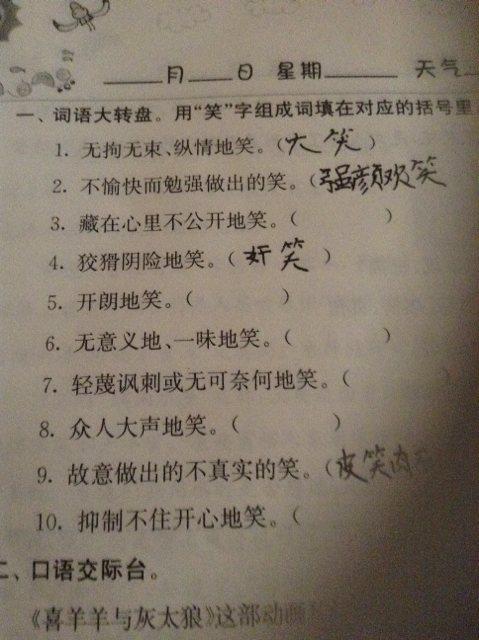 ____月____日 星期______ 天气
一、词语大转盘。用“笑”字组成词填在对应的括号里。
1. 无拘无束、纵情地笑。(大笑)
2. 不愉快而勉强做出的笑。(强颜欢笑
3. 藏在心里不公开地笑。( )
4. 狡猾阴险地笑。(奸笑)
5. 开朗地笑。( )
6. 无意义地、一味地笑。( )
7. 轻蔑讽刺或无可奈何地笑。(
8. 众人大声地笑。( )
9. 故意做出的不真实的笑。(皮笑肉
10. 抑制不住开心地笑。(
二、口语交际台。
《喜羊羊与灰太狼》这部动画